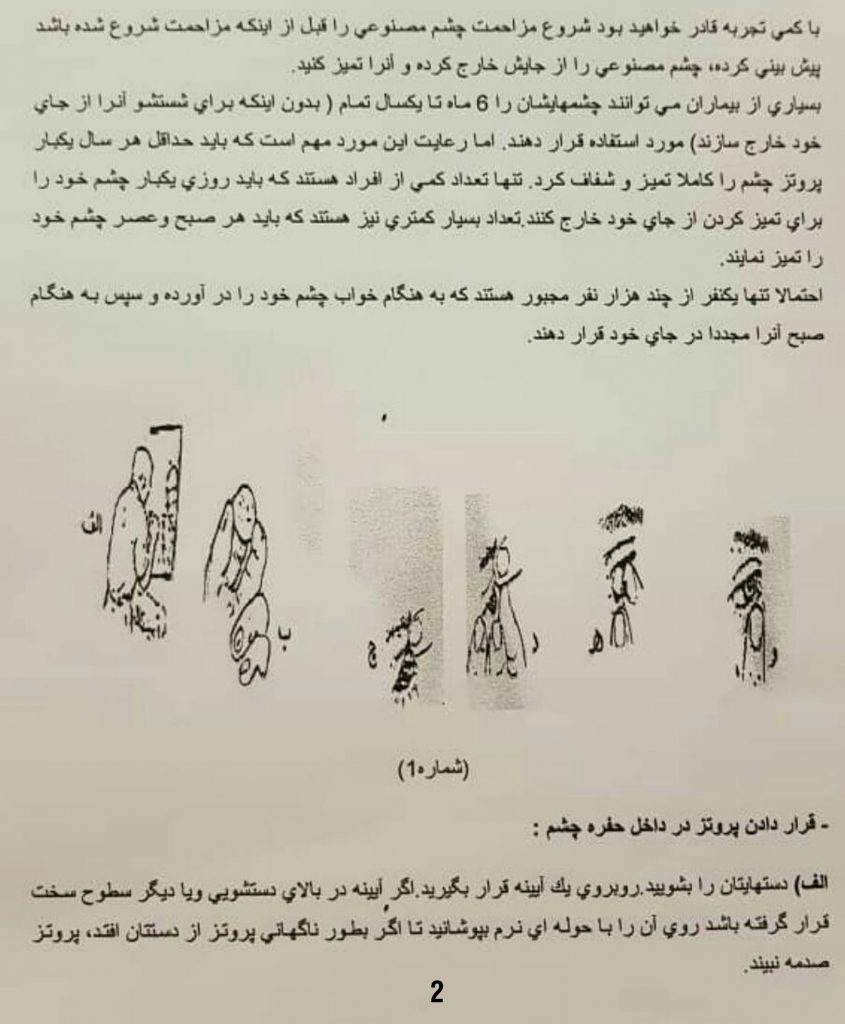 با كمي تجربه قادر خواهيد بود شروع مزاحمت چشم مصنوعي را قبل از اينكه مزاحمت شروع شده باشد
پيش بيني كرده، چشم مصنوعي را از جايش خارج كرده و آنرا تميز كنيد.
بسياري از بيماران مي توانند چشمهايشان را 6 ماه تا يكسال تمام ( بدون اينكه براي شستشو آنرا از جاي
خود خارج سازند) مورد استفاده قرار دهند. اما رعايت اين مورد مهم است كه بايد حداقل هر سال يكبار
پروتز چشم را كاملا تميز و شفاف كرد. تنها تعداد كمي از افراد هستند كه بايد روزي يكبار چشم خود را
براي تميز كردن از جاي خود خارج كنند.تعداد بسيار كمتري نيز هستند كه بايد هر صبح وعصر چشم خود
را تميز نمايند.
احتمالا تنها يكنفر از چند هزار نفر مجبور هستند كه به هنگام خواب چشم خود را در آورده و سپس به هنگام
صبح آنرا مجددا در جاي خود قرار دهند.
الف
ب
ج
د
ه
و
(شماره1)
- قرار دادن پروتز در داخل حفره چشم :
الف) دستهايتان را بشوييد.روبروي يك آيينه قرار بگيريد.اگر آيينه در بالاي دستشويي ويا ديگر سطوح سخت
قرار گرفته باشد روي آن را با حوله اي نرم بپوشانيد تا اگر بطور ناگهاني پروتز از دستتان افتد، پروتز
صدمه نبيند.
2